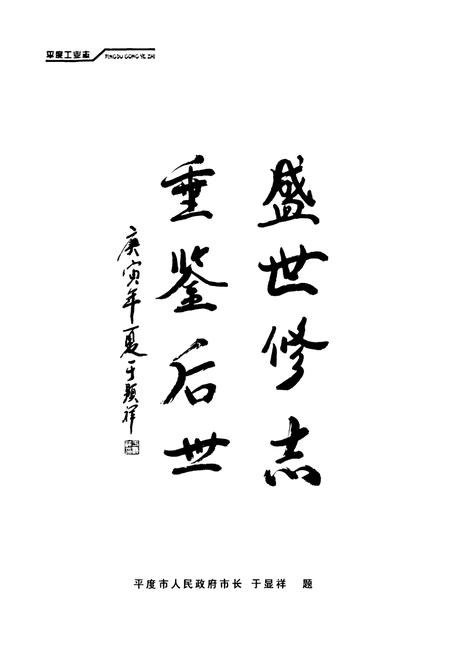 平度工业志
PINGDU GONG YE ZHI
盛世修志
垂鉴后世
庚寅年夏于顯祥
平度市人民政府市长 于显祥 题